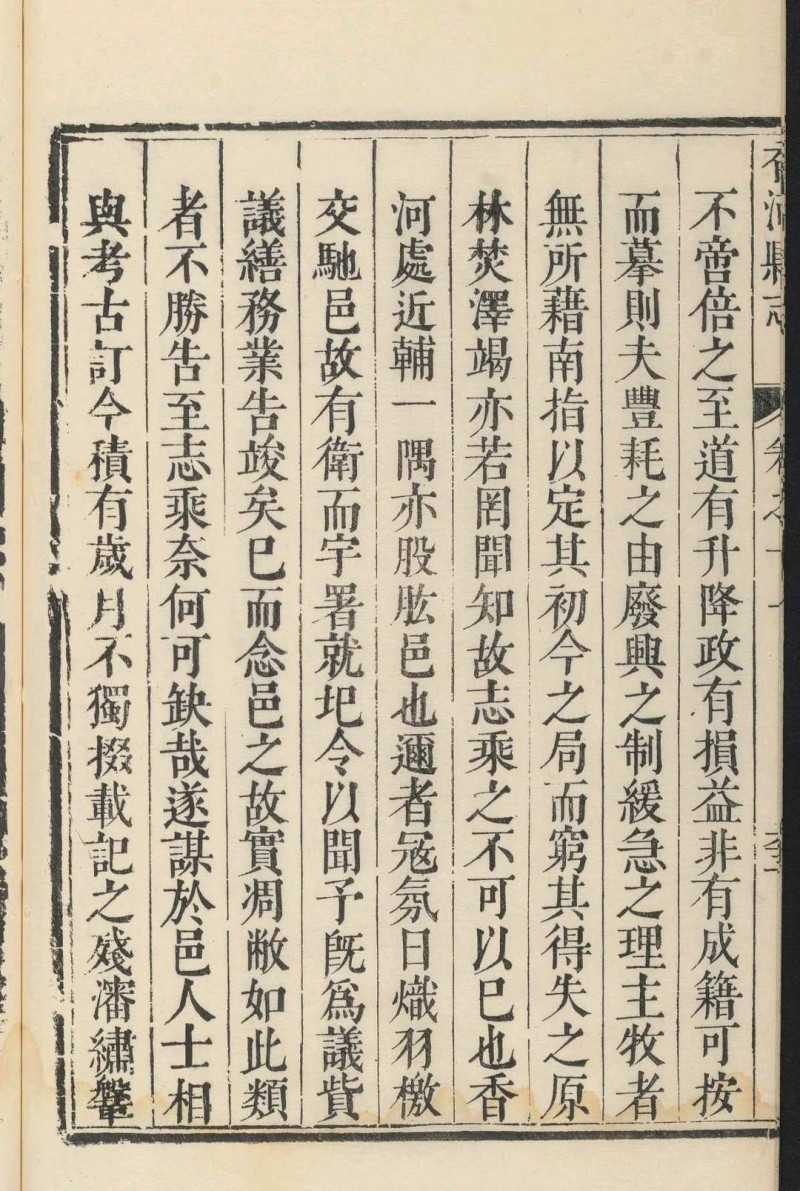 香河縣志
不啻倍之至道有升降政有損益非有成籍可按
而摹則夫豐耗之由廢興之制緩急之理主牧者
無所藉南指以定其初今之局而窮其得失之原
林焚澤竭亦若罔聞知故志乘之不可以已也香
河處近輔一隅亦股肱邑也邇者冦氛日熾羽檄
交馳邑故有衛而宇署就圯令以聞予旣爲議貲
議繕務業告竣矣巳而念邑之故實凋敝如此類
者不勝告至志乘奈何可缺哉遂謀於邑人士相
與考古訂今積有歲月不獨掇載記之殘瀋繡鞶